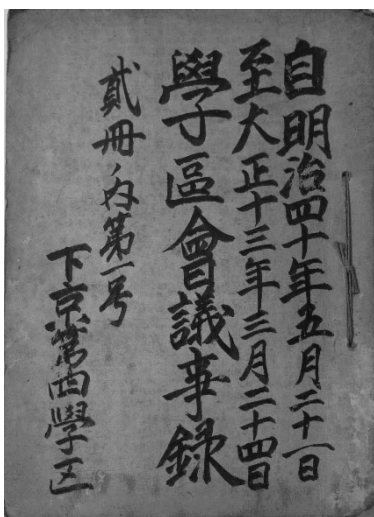 自明治四十年五月二十一日
至大正十三年三月二十四日
學區會議事録
貳冊ノ内第一号
下京 學区